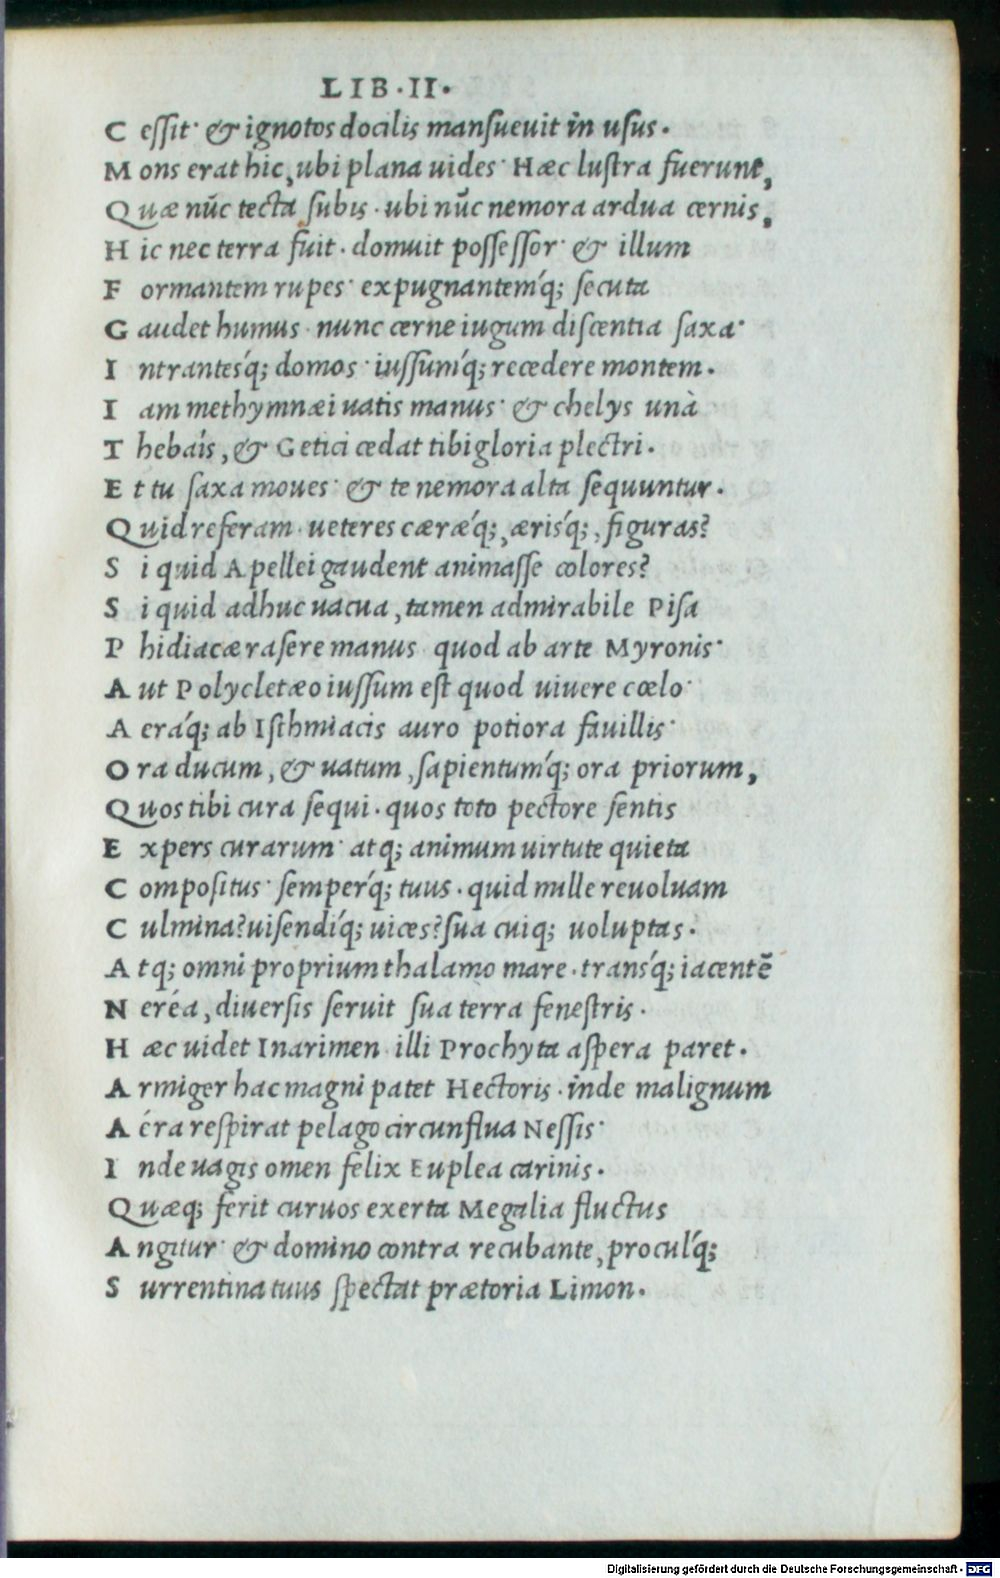 LIB·II·
C essit· & ignotos docilis mansueuit in usus.
M ons erat hic, ubi plana uides· Hæc lustra fuerunt,
Q uæ nūc tecta subis· ubi nūc nemora ardua cernis,
H ic nec terra fuit· domuit possessor· & illum
F ormantem rupes· expugnantemq́; secuta
G audet humus· nunc cerne iugum discentia saxa·
I ntrantesq́; domos· iussumq́; recedere montem.
I am methymnæi uatis manus· & chelys unà
T hebaïs, & Getici cedat tibi gloria plectri.
E t tu saxa moues· & te nemora alta sequuntur.
Q uid referam· ueteres cæræq́;, ærisq́;, figuras?
S i quid Apellei gaudent animasse colores?
S i quid adhuc uacua, tamen admirabile Pisa
P hidiacæ rasere manus· quod ab arte Myronis·
A ut Polycletæo iussum est quod uiuere cœlo·
A eráq; ab Isthmiacis auro potiora fauillis·
O ra ducum, & uatum, sapientumq́; ora priorum,
Q uos tibi cura sequi· quos toto pectore sentis
E xpers curarum· atq; animum uirtute quieta
C ompositus· semperq́; tuus· quid mille reuoluam
C ulmina? uisendiq́; uices? sua cuiq; uoluptas.
A tq; omni proprium thalamo mare· transq́; iacentē
N eréa, diuersis seruit sua terra fenestris.
H æc uidet Inarimen· illi Prochyta aspera paret.
A rmiger hac magni patet Hectoris· inde malignum
A éra respirat pelago circunflua Nessis·
I nde uagis omen felix Euplea carinis.
Q uæq; ferit curuos exerta Megalia fluctus
A ngitur· & domino contra recubante, proculq́;
S urrentina tuus spectat prætoria Limon.
Digitalisierung gefördert durch die Deutsche Forschungsgemeinschaft - DFG